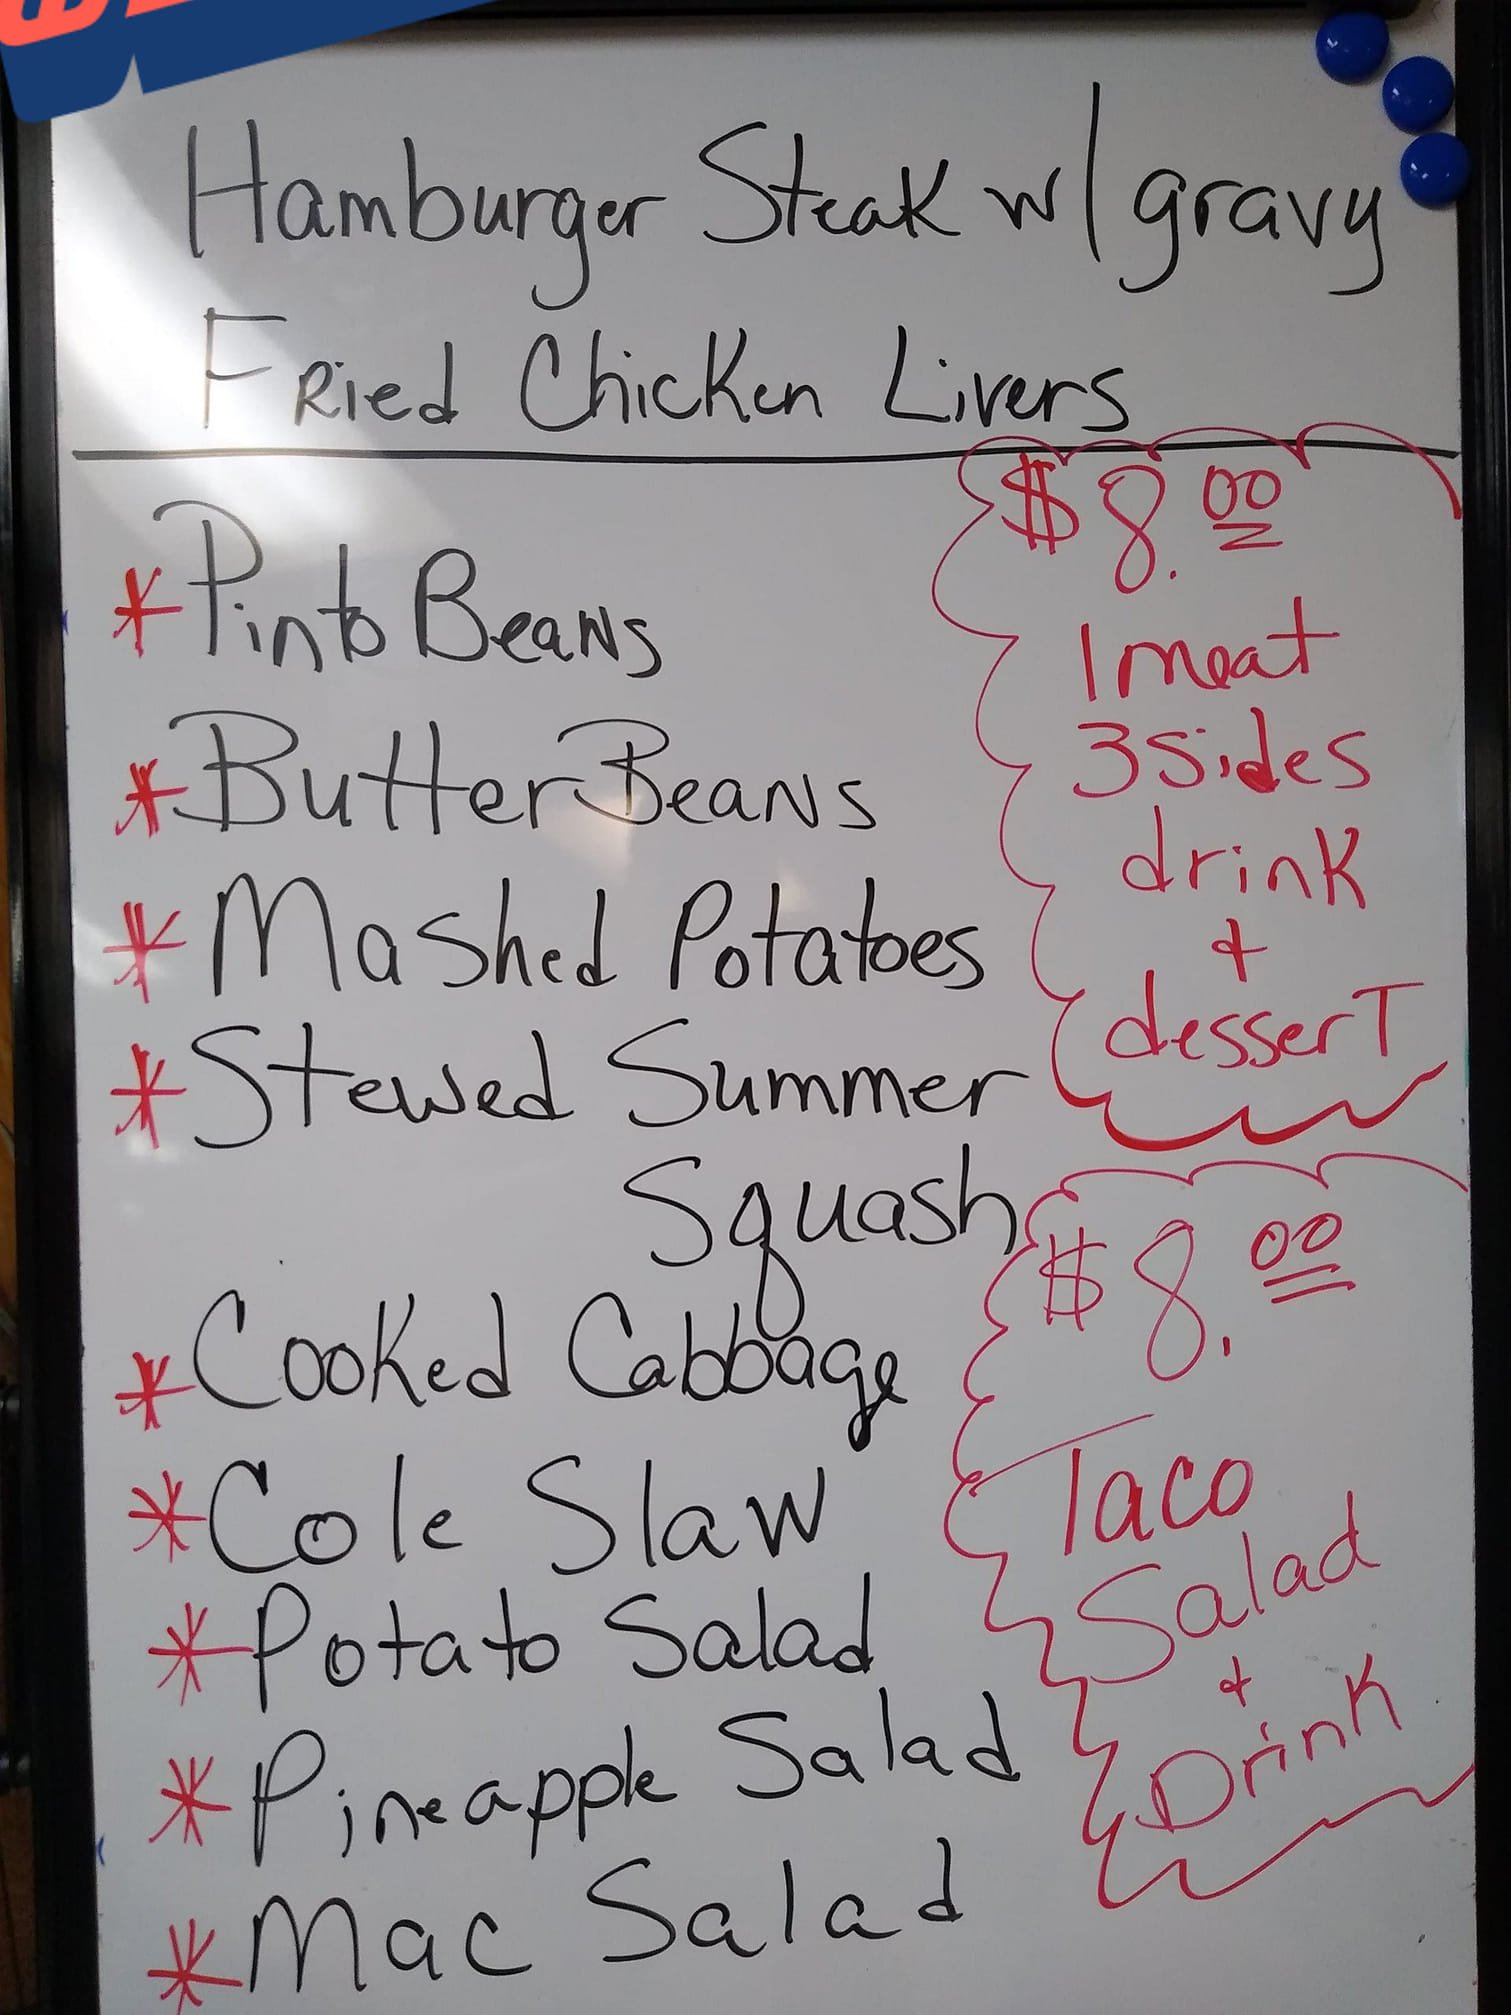 Hamburger Steak w/ gravy
Fried Chicken Livers
* Pinto Beans
* Butter Beans
* Mashed Potatoes
* Stewed Summer
Squash
* Cooked Cabbage
* Cole Slaw
* Potato Salad
* Pineapple Salad
* Mac Salad
$8.00
1 meat
3 sides
drink
&
dessert
$8.00
Taco
Salad
&
Drink